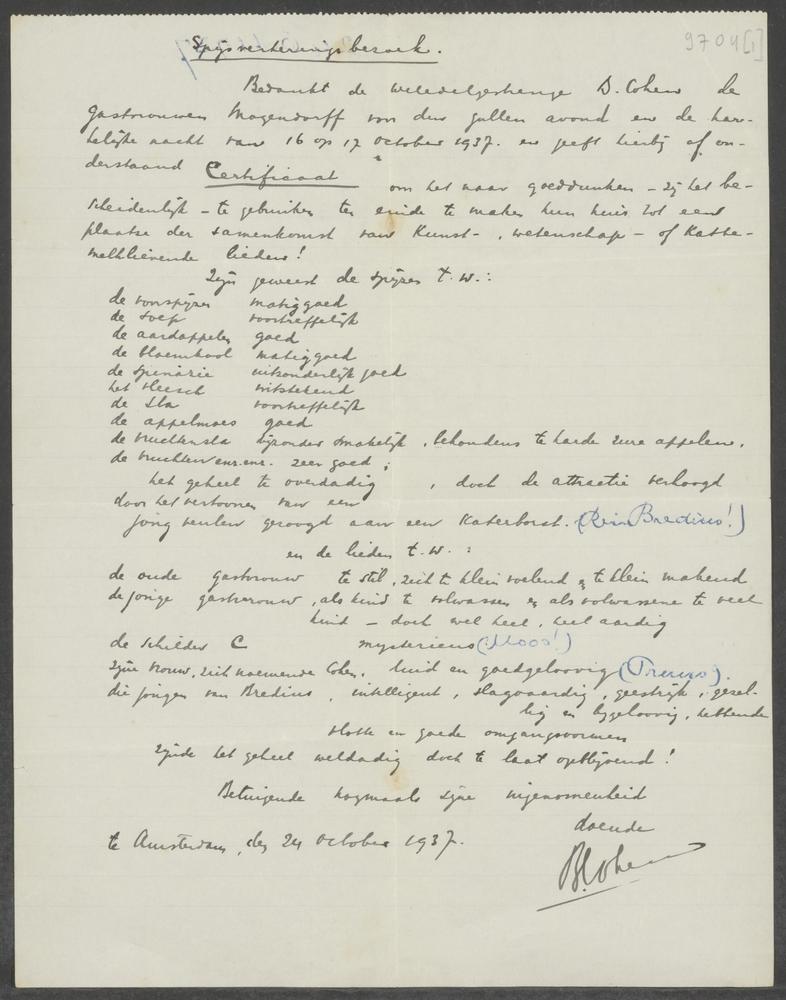 9704[1]
Spijsverteringsbezoek.
Bedankt de weledelgestrenge D. Cohen de
gastvrouwen Magendorff voor den gullen avond en de har-
telijke nacht van 16 op 17 October 1937. en geeft hierbij of on-
derstaand Certificaat om het naar goeddunken – zij het be-
scheidenlijk – te gebruiken ten einde te maken hun huis tot een
plaatse der samenkomst van Kunst-, wetenschap- of Katte-
melklievende lieden!
Zijn geweest de spijzen t.w.:
de voorspijzen matig goed
de soep voortreffelijk
de aardappelen goed
de bloemkool matig goed
de spinazie uitzonderlijk goed
het vleesch uitstekend
de sla voortreffelijk
de appelmoes goed
de vruchtensla bijzonder smakelijk, behoudens te harde zure appelen.
de vruchten enz. enz. zeer goed;
het geheel te overdadig, doch de attractie verhoogd
door het vertoonen van een
jong veulen gezoogd aan een Katerborst. (Rein Bredius!)
en de lieden t.w.:
de oude gastvrouw te stil, zich te klein voelend en te klein makend
de jonge gastvrouw, als kind te volwassen en als volwassene te veel
kind – doch wel heel, heel aardig
de schilder C mysterieus
zijne vrouw, zich noemende Cohen, luid en goedgeloovig (Truus).
die jongen van Bredius, intelligent, slagvaardig, geestrijk, gezel-
lig en bijgeloovig, hebbende
vlotte en goede omgangsvormen
Zijnde het geheel weldadig doch te laat opblijvend!
Betuigende nogmaals zijne ingenomenheid
doende
te Amsterdam, den 24 October 1937.
D. Cohen